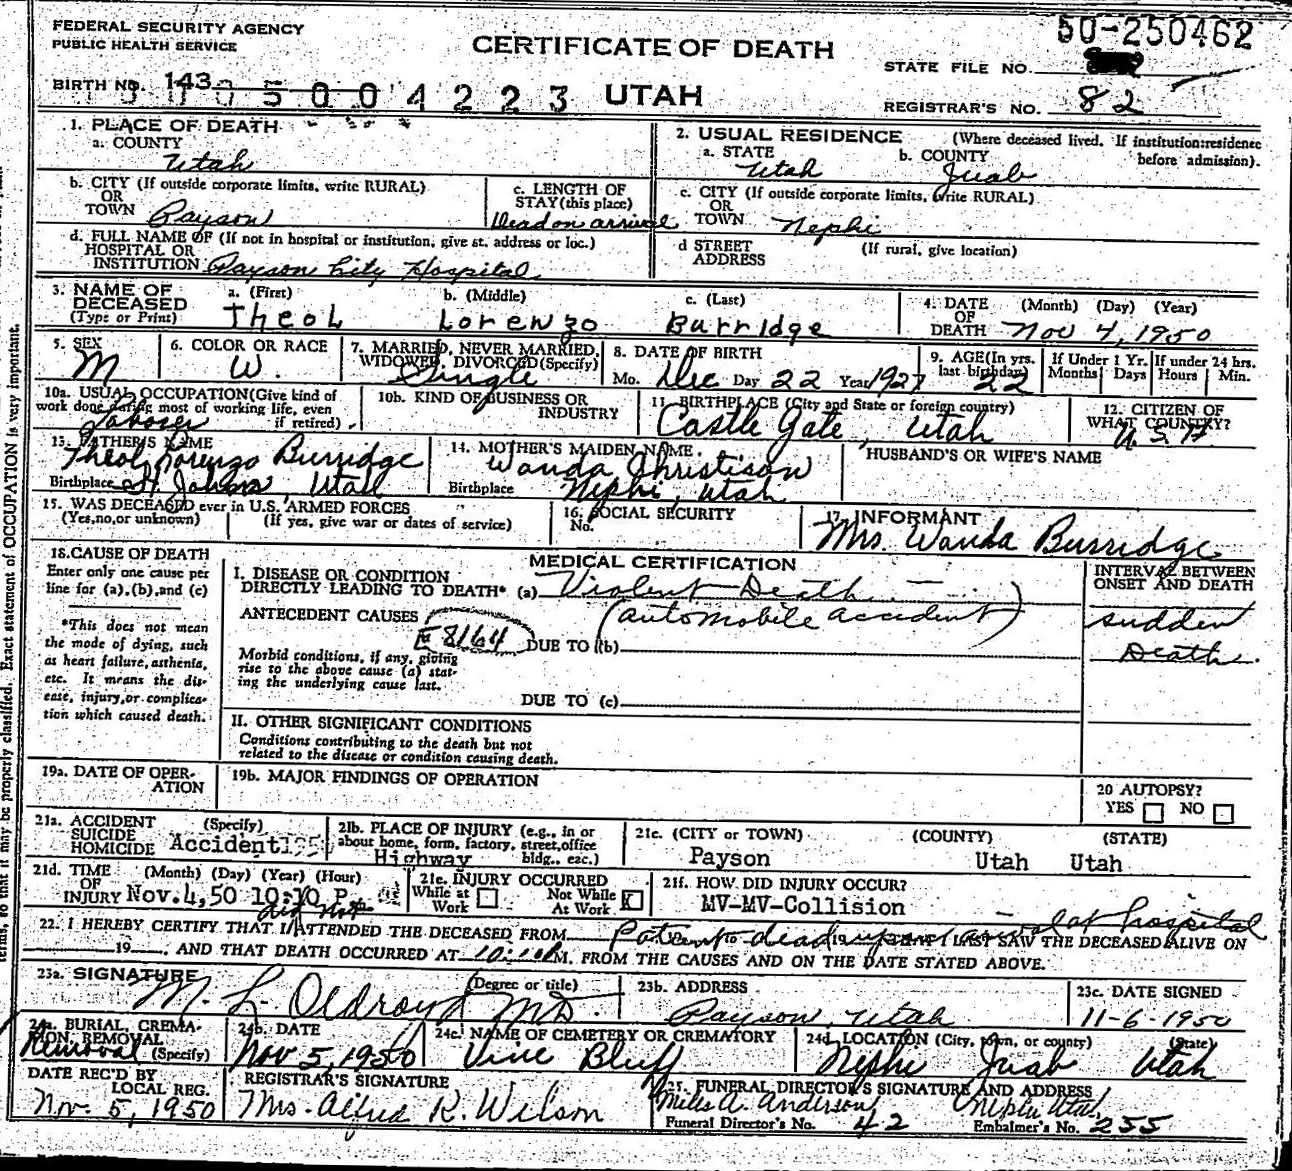 FEDERAL SECURITY AGENCY
PUBLIC HEALTH SERVICE
CERTIFICATE OF DEATH
50-250462
STATE FILE NO.
BIRTH NO. 143
5004223 UTAH
REGISTRAR'S NO. 82
1. PLACE OF DEATH
a. COUNTY
Utah
2. USUAL RESIDENCE (Where deceased lived. If institution:residence before admission).
a. STATE Utah b. COUNTY Juab
b. CITY (If outside corporate limits, write RURAL)
OR
TOWN Payson
c. LENGTH OF
STAY (this place)
Dead on arrival
c. CITY (If outside corporate limits, write RURAL)
OR
TOWN Nephi
d. FULL NAME OF (If not in hospital or institution, give st. address or loc.)
HOSPITAL OR
INSTITUTION Payson City Hospital
d STREET
ADDRESS
(If rural, give location)
3. NAME OF
DECEASED
(Type or Print)
a. (First) b. (Middle) c. (Last)
Theol Lorenzo Burridge
4. DATE (Month) (Day) (Year)
OF
DEATH Nov 4, 1950
5. SEX
M
6. COLOR OR RACE
W.
7. MARRIED, NEVER MARRIED,
WIDOWED, DIVORCED (Specify)
Single
8. DATE OF BIRTH
Mo. Dec Day 22 Year 1927
9. AGE (In yrs.
last birthday)
22
If Under 1 Yr.
Months Days
If under 24 hrs.
Hours Min.
10a. USUAL OCCUPATION (Give kind of
work done during most of working life, even
if retired)
Laborer
10b. KIND OF BUSINESS OR
INDUSTRY
11. BIRTHPLACE (City and State or foreign country)
Castle Gate, Utah
12. CITIZEN OF
WHAT COUNTRY?
U.S.A
13. FATHER'S NAME
Theol Lorenzo Burridge
Birthplace St Johns, Utah
14. MOTHER'S MAIDEN NAME.
Wanda Christison
Birthplace Nephi, Utah
HUSBAND'S OR WIFE'S NAME
15. WAS DECEASED ever in U.S. ARMED FORCES
(Yes,no,or unknown) (If yes, give war or dates of service)
16. SOCIAL SECURITY
No.
17. INFORMANT
Mrs. Wanda Burridge
18. CAUSE OF DEATH
Enter only one cause per
line for (a),(b),and (c)
*This does not mean
the mode of dying, such
as heart failure, asthenia,
etc. It means the dis-
ease, injury,or complica-
tion which caused death.
MEDICAL CERTIFICATION
I. DISEASE OR CONDITION
DIRECTLY LEADING TO DEATH* (a) Violent Death
(automobile accident)
ANTECEDENT CAUSES
E8164
DUE TO (b)
Morbid conditions, if any, giving
rise to the above cause (a) stat-
ing the underlying cause last.
DUE TO (c)
INTERVAL BETWEEN
ONSET AND DEATH
sudden
Death.
II. OTHER SIGNIFICANT CONDITIONS
Conditions contributing to the death but not
related to the disease or condition causing death.
19a. DATE OF OPER-
ATION
19b. MAJOR FINDINGS OF OPERATION
20 AUTOPSY?
YES NO
21a. ACCIDENT (Specify)
SUICIDE
HOMICIDE Accident
21b. PLACE OF INJURY (e.g., in or
about home, form, factory, street,office
bldg., ezc.)
Highway
21c. (CITY or TOWN) (COUNTY) (STATE)
Payson Utah Utah
21d. TIME (Month) (Day) (Year) (Hour)
OF
INJURY Nov.4,50 10:10 P.
21e. INJURY OCCURRED
While at
Work
Not While
At Work X
21f. HOW DID INJURY OCCUR?
MV-MV-Collision
22. I HEREBY CERTIFY THAT I did not ATTENDED THE DECEASED FROM Patient dead upon arrival at hospital I LAST SAW THE DECEASED ALIVE ON
19 , AND THAT DEATH OCCURRED AT 10:10P M. FROM THE CAUSES AND ON THE DATE STATED ABOVE.
23a. SIGNATURE (Degree or title)
M. L. Oldroyd MD.
23b. ADDRESS
Payson, Utah
23c. DATE SIGNED
11-6-1950
24a. BURIAL, CREMA-
TION, REMOVAL
(Specify)
Removal
24b. DATE
Nov 5, 1950
24c. NAME OF CEMETERY OR CREMATORY
Vine Bluff
24d. LOCATION (City, town, or county) (State)
Nephi Juab Utah
DATE REC'D BY
LOCAL REG.
Nov. 5, 1950
REGISTRAR'S SIGNATURE
Mrs. Alfred K. Wilson
25. FUNERAL DIRECTOR'S SIGNATURE AND ADDRESS
Miles A. Anderson Nephi Utah.
Funeral Director's No. 42 Embalmer's No. 255
terms, so that it may be properly classified. Exact statement of OCCUPATION is very important.